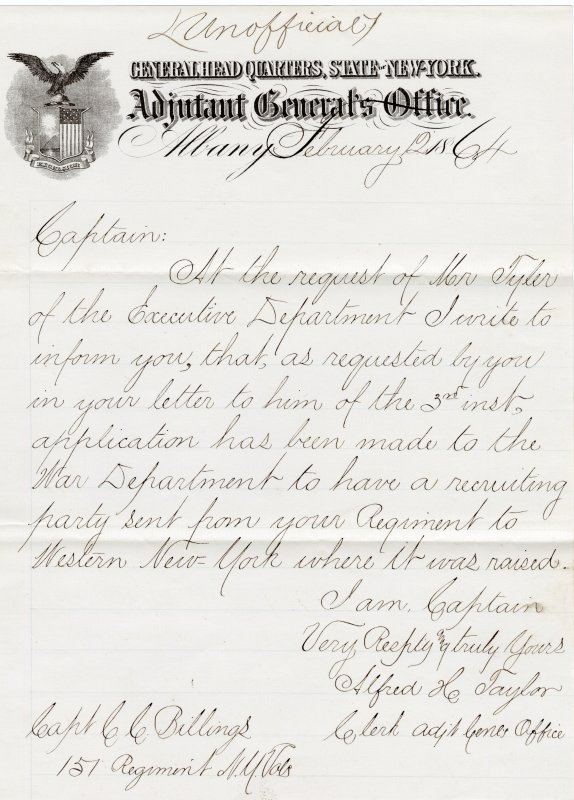 (Unofficial)
GENERAL HEAD QUARTERS, STATE OF NEW-YORK.
Adjutant General's Office.
Albany, February 12 1864
Captain:
At the request of Mr Tyler
of the Executive Department I write to
inform you, that, as requested by you
in your letter to him of the 3rd inst,
application has been made to the
War Department to have a recruiting
party sent from your Regiment to
Western New-York where it was raised.
I am, Captain
Very Respfly & truly Yours
Alfred H Taylor
Clerk Adjt Genes Office
Capt C C Billings
151 Regiment N.Y Vols